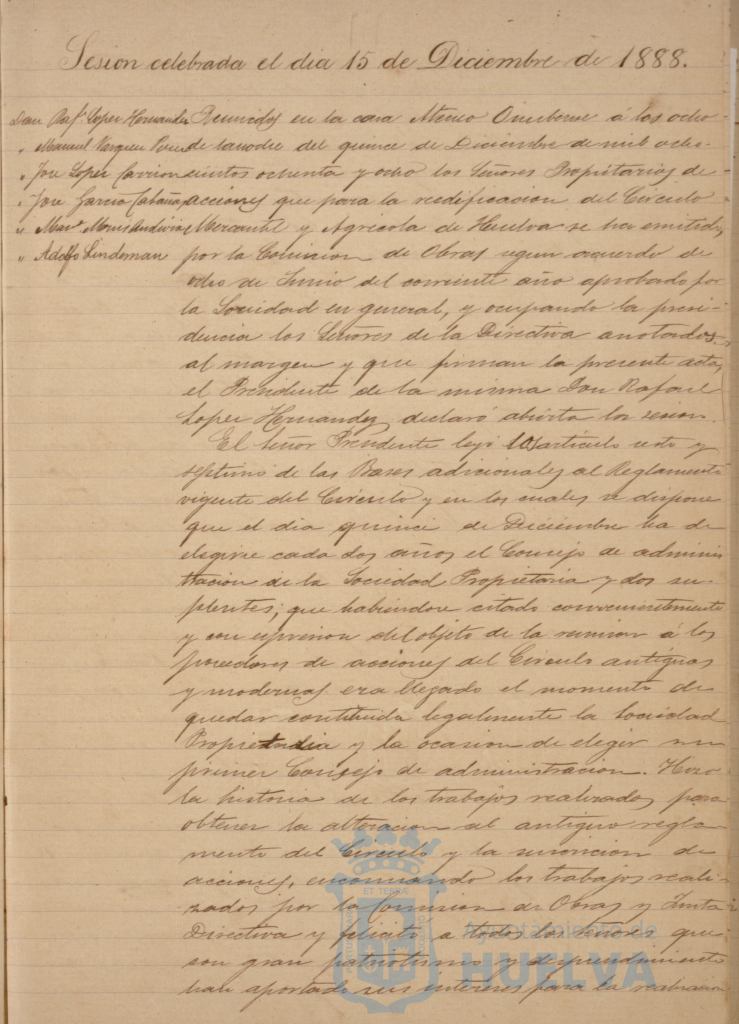 Sesion celebrada el dia 15 de Diciembre de 1888.
Don Raf.l Lopez Hernandez
" Manuel Vazquez Perez
" Jose Lopez Carrion
" Jose Garcia Cabañas
" Man.l Mons Andivia
" Adolfo Lindeman
Reunidos en la casa Ateneo Onubense á las ocho
de la noche del quince de Diciembre de mil ocho-
cientos ochenta y ocho los Señores Propietarios de
acciones que para la reedificacion del Circulo
Mercantil y Agricola de Huelva se ha emitido,
por la Comision de Obras segun acuerdo de
ocho de Junio del corriente año aprobado por
la Sociedad en general, y ocupando la presi-
dencia los Señores de la Directiva anotados
al margen y que firman la presente acta,
el Presidente de la misma Don Rafael
Lopez Hernandez declaró abierta la sesion.
El Señor Presidente leyó los artículo sesto y
septimo de las Bases adicionales al Reglamento
vigente del Circulo y en los cuales se dispone
que el dia quince de Diciembre ha de
elegirse cada dos años el Consejo de adminis
tracion de la Sociedad Propietaria y dos su-
plentes; que habiendose citado convenientemente
y con espresion del objeto de la reunion á los
poseedores de acciones del Circulo antiguas
y modernas era llegado el momento de
quedar constituida legalmente la Sociedad
Propietaria y la ocasion de elegir su
primer Consejo de administracion. Hizo
la historia de los trabajos realizados para
obtener la alteracion al antiguo regla-
mento del Circulo y la suscricion de
acciones, encomiando los trabajos reali-
zados por la Comision de Obras y Junta
Directiva y felicitó a todos los Señores que
con gran patriotismo y desprendimiento
han aportado sus intereses para la realizacion
ET TERRAE
Ayuntamiento de
HUELVA